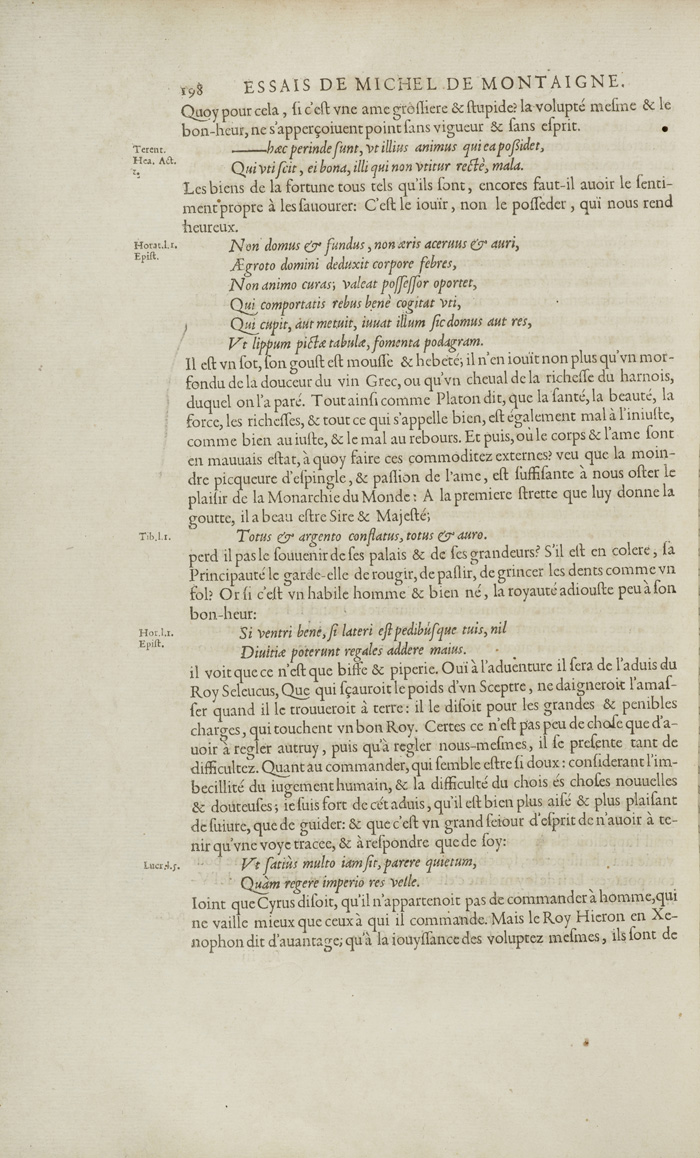 198 ESSAIS DE MICHEL DE MONTAIGNE.
Quoy pour cela, ſi c'eſt vne ame groſſiere & ſtupide? la volupté meſme & le
bon-heur, ne s'apperçoiuent point ſans vigueur & ſans eſprit.
Terent.
Hea. Act.
1.
——hæc perinde ſunt, vt illius animus qui ea poßidet,
Qui vti ſcit, ei bona, illi qui non vtitur rectè, mala.
Les biens de la fortune tous tels qu'ils ſont, encores faut-il auoir le ſenti-
ment propre à les ſauourer: C'eſt le iouïr, non le poſſeder, qui nous rend
heureux.
Horat. l.1.
Epiſt.
Non domus & fundus, non æris aceruus & auri,
Ægroto domini deduxit corpore febres,
Non animo curas; valeat poſſeſſor oportet,
Qui comportatis rebus benè cogitat vti,
Qui cupit, aut metuit, iuuat illum ſic domus aut res,
Vt lippum pictæ tabulæ, fomenta podagram.
Il eſt vn ſot, ſon gouſt eſt mouſſe & hebeté; il n'en iouït non plus qu'vn mor-
fondu de la douceur du vin Grec, ou qu'vn cheual de la richeſſe du harnois,
duquel on l'a paré. Tout ainſi comme Platon dit, que la ſanté, la beauté, la
force, les richeſſes, & tout ce qui s'appelle bien, eſt également mal à l'iniuſte,
comme bien au iuſte, & le mal au rebours. Et puis, où le corps & l'ame ſont
en mauuais eſtat, à quoy faire ces commoditez externes? veu que la moin-
dre picqueure d'eſpingle, & paſſion de l'ame, eſt ſuffiſante à nous oſter le
plaiſir de la Monarchie du Monde: A la premiere ſtrette que luy donne la
goutte, il a beau eſtre Sire & Majeſté;
Tib. l.1.
Totus & argento conflatus, totus & auro.
perd il pas le ſouuenir de ſes palais & de ſes grandeurs? S'il eſt en colere, ſa
Principauté le garde-elle de rougir, de paſlir, de grincer les dents comme vn
fol? Or ſi c'eſt vn habile homme & bien né, la royauté adiouſte peu à ſon
bon-heur:
Hor. l.1.
Epiſt.
Si ventri bene, ſi lateri eſt pedibúſque tuis, nil
Diuitiæ poterunt regales addere maius.
il voit que ce n'eſt que biffe & piperie. Ouï à l'aduenture il ſera de l'aduis du
Roy Seleucus, Que qui ſçauroit le poids d'vn Sceptre, ne daigneroit l'amaſ-
ſer quand il le trouueroit à terre: il le diſoit pour les grandes & penibles
charges, qui touchent vn bon Roy. Certes ce n'eſt pas peu de choſe que d'a-
uoir à regler autruy, puis qu'à regler nous-meſmes, il ſe preſente tant de
difficultez. Quant au commander, qui ſemble eſtre ſi doux: conſiderant l'im-
becillité du iugement humain, & la difficulté du chois és choſes nouuelles
& douteuſes; ie ſuis fort de cét aduis, qu'il eſt bien plus aiſé & plus plaiſant
de ſuiure, que de guider: & que c'eſt vn grand ſeiour d'eſprit de n'auoir à te-
nir qu'vne voye tracee, & à reſpondre que de ſoy:
Lucr. l.5.
Vt ſatiùs multo iam ſit, parere quietum,
Quàm regere imperio res velle.
Ioint que Cyrus diſoit, qu'il n'appartenoit pas de commander à homme, qui
ne vaille mieux que ceux à qui il commande. Mais le Roy Hieron en Xe-
nophon dit d'auantage; qu'à la iouyſſance des voluptez meſmes, ils ſont de